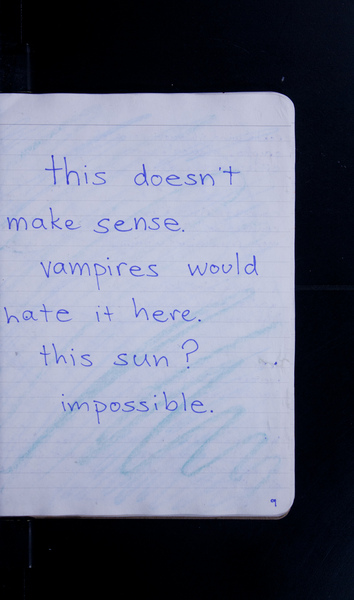 this doesn't
make sense.
vampires would
hate it here.
this sun?
impossible.
9